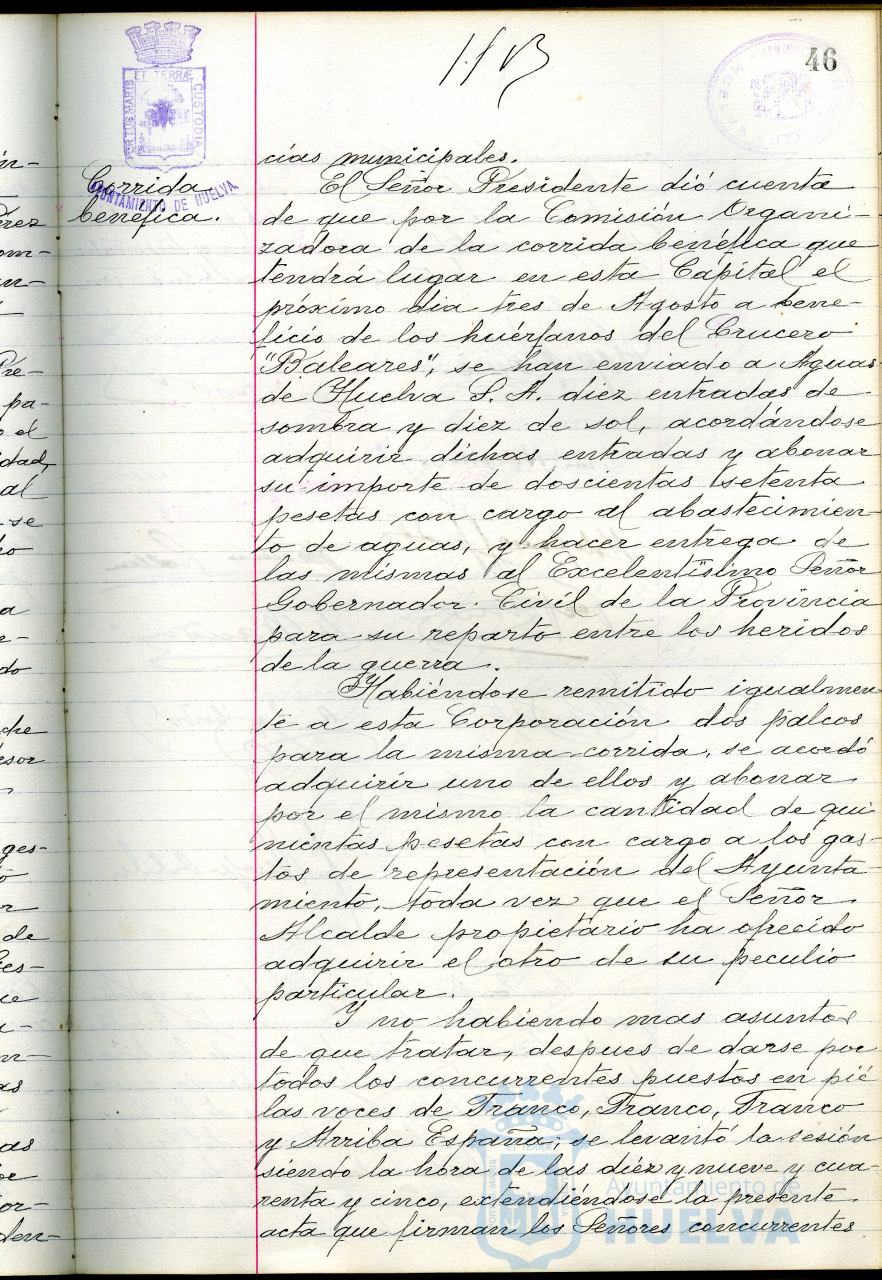 46
PORTUS MARIS ET TERRÆ CUSTODIA
AYUNTAMIENTO DE HUELVA
Corrida
benéfica.
cías municipales.
El Señor Presidente dió cuenta
de que por la Comisión Organi-
zadora de la corrida benéfica que
tendrá lugar en esta Capital el
próximo dia tres de Agosto a bene-
ficio de los huérfanos del Crucero
"Baleares", se han enviado a Aguas
de Huelva S. A. diez entradas de
sombra y diez de sol, acordándose
adquirir dichas entradas y abonar
su importe de doscientas setenta
pesetas con cargo al abastecimien-
to de aguas, y hacer entrega de
las mismas al Excelentísimo Señor
Gobernador Civil de la Provincia
para su reparto entre los heridos
de la guerra.
Habiéndose remitido igualmen-
te a esta Corporación dos palcos
para la misma corrida, se acordó
adquirir uno de ellos y abonar
por el mismo la cantidad de qui-
nientas pesetas con cargo a los gas-
tos de representación del Ayunta-
miento, toda vez que el Señor
Alcalde propietario ha ofrecido
adquirir el otro de su peculio
particular.
Y no habiendo mas asuntos
de que tratar, despues de darse por
todos los concurrentes puestos en pié
las voces de Franco, Franco, Franco
y Arriba España; se levantó la sesión
siendo la hora de las diez y nueve y cua-
renta y cinco, extendiéndose la presente
acta que firman los Señores concurrentes
Ayuntamiento de
HUELVA